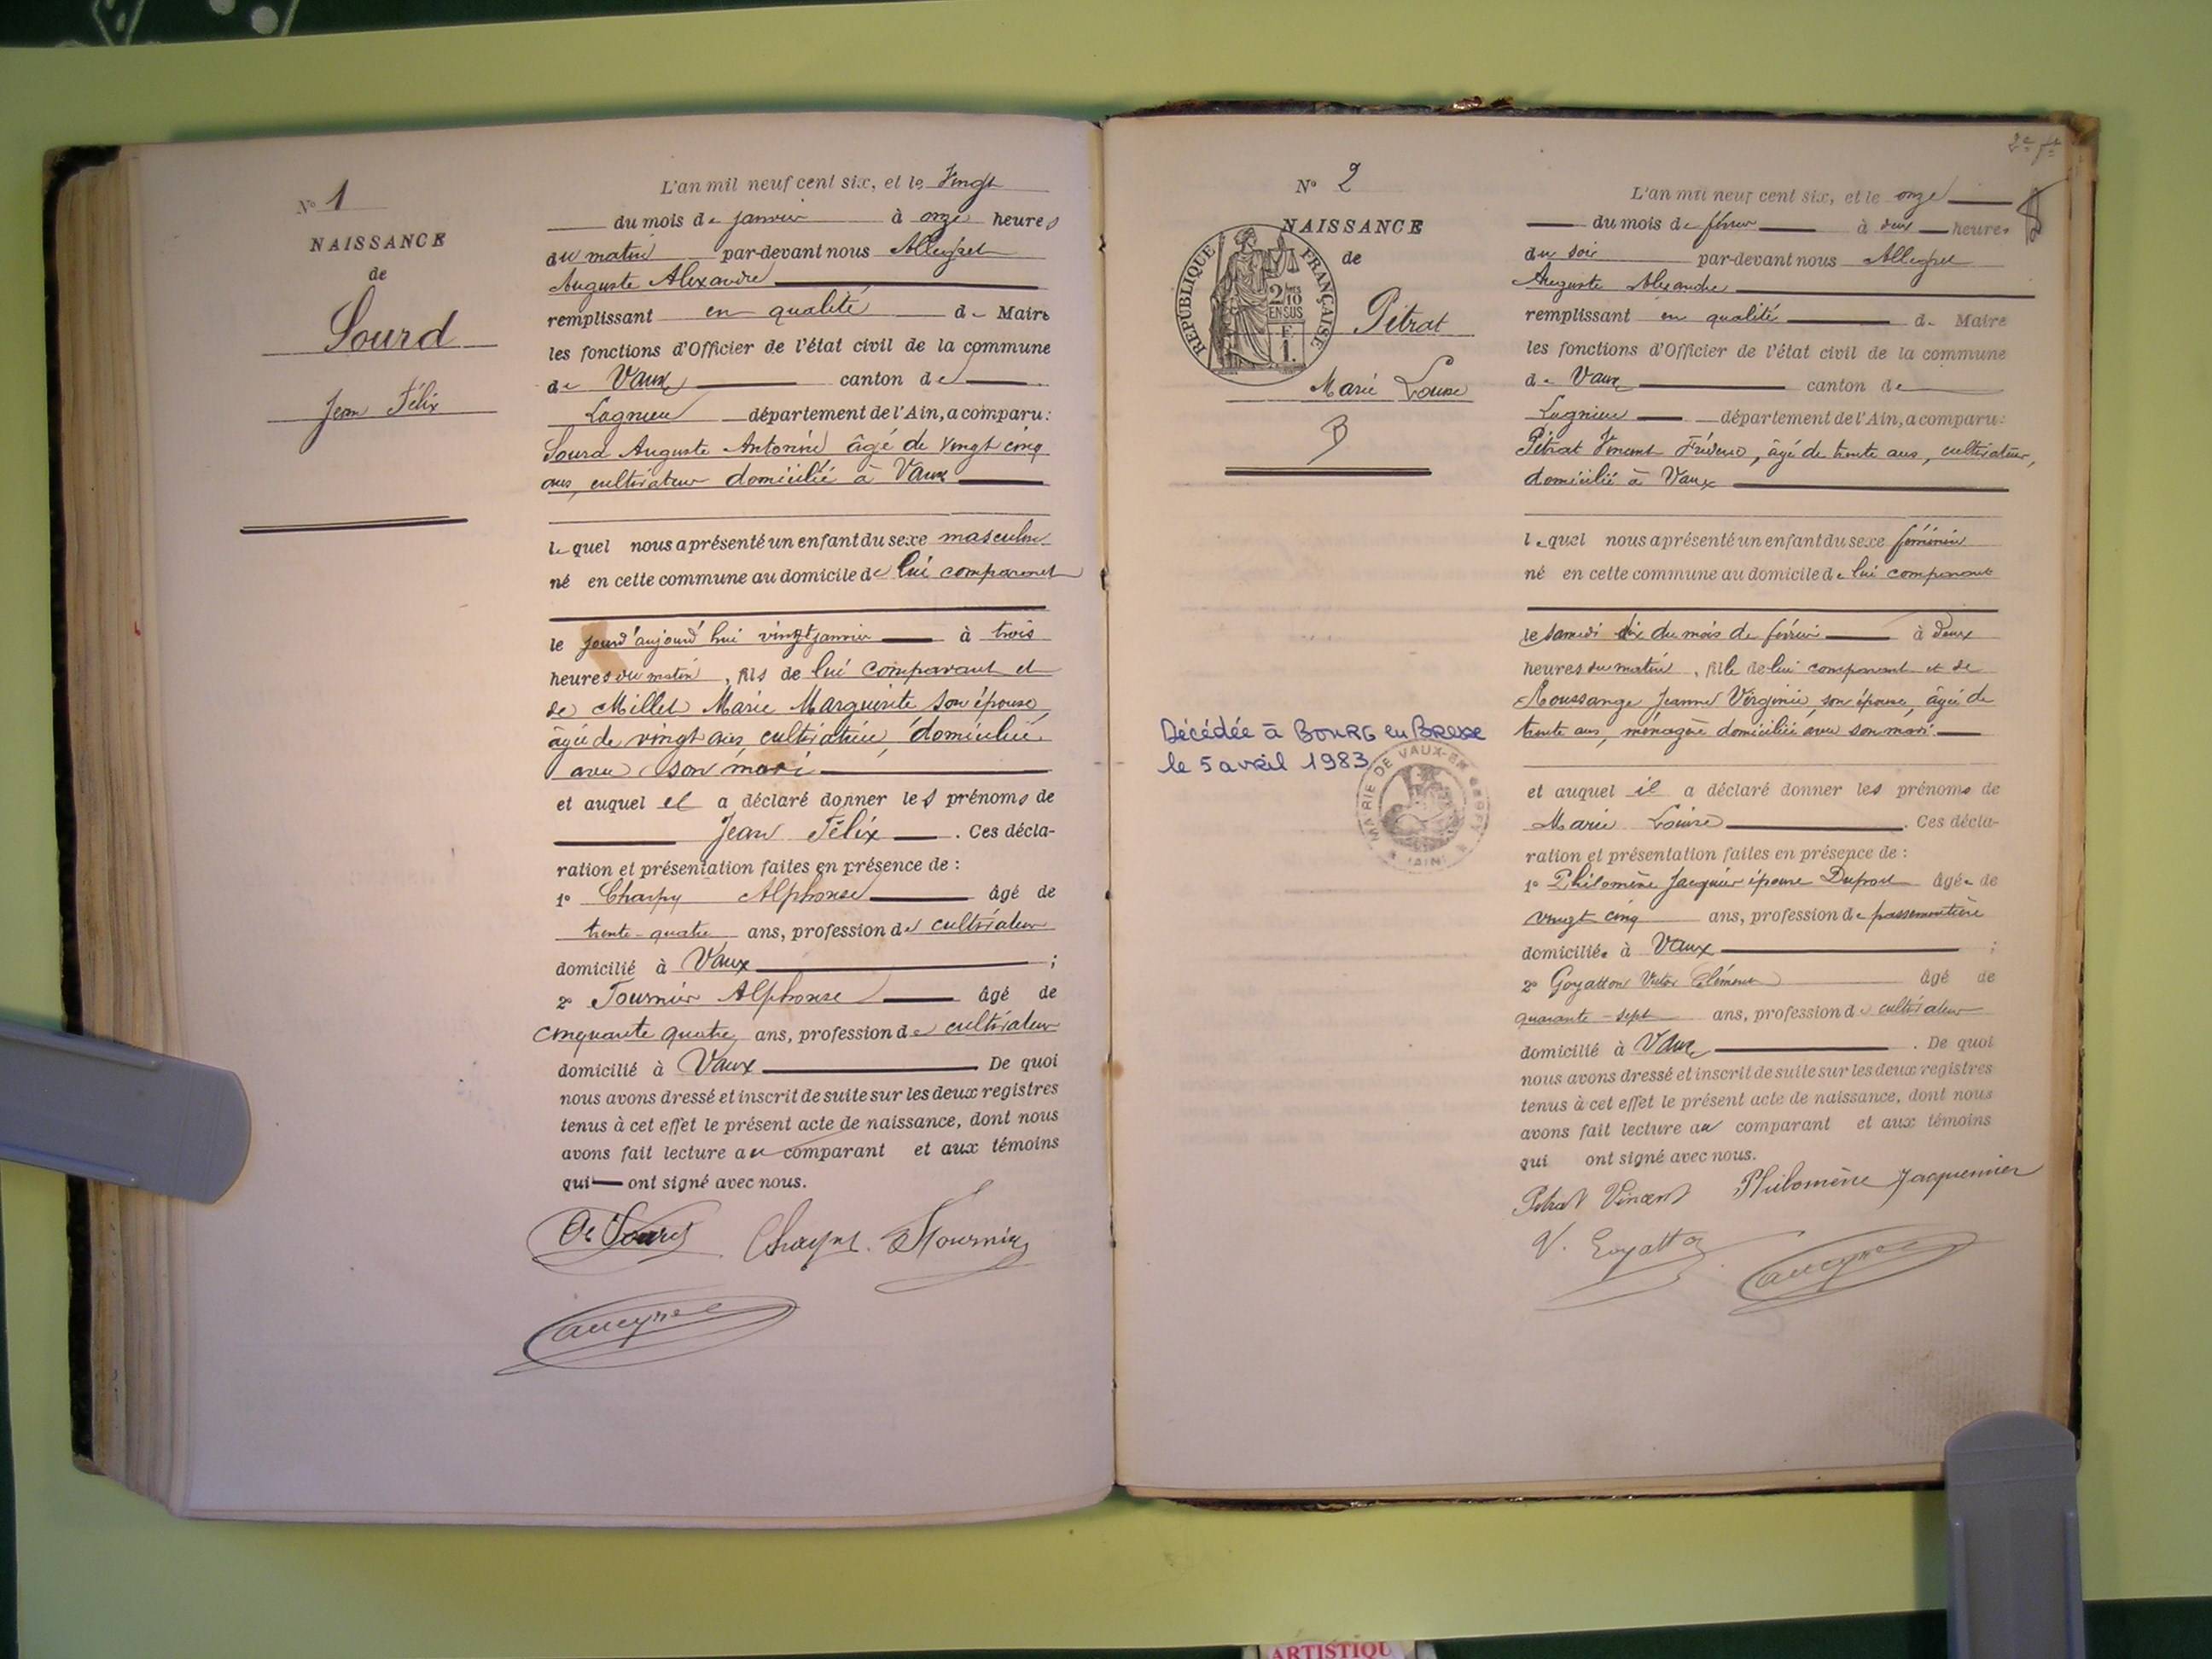 N° 1
NAISSANCE
de
Sourd
Jean Félix
L'an mil neuf cent six, et le Vingt
du mois de janvier à onze heures
du matin par-devant nous Allegret
Auguste Alexandre
remplissant en qualité de Maire
les fonctions d'Officier de l'état civil de la commune
de Vaux canton de
Lagnieu département de l'Ain, a comparu:
Sourd Auguste Antonin âgé de vingt cinq
ans, cultivateur domicilié à Vaux
lequel nous a présenté un enfant du sexe masculin
né en cette commune au domicile de lui comparant
le jourd'aujourd'hui vingt janvier à trois
heures du matin, fils de lui comparant et
de Millet Marie Marguerite son épouse,
âgée de vingt ans, cultivatrice, domiciliée
avec son mari
et auquel il a déclaré donner les prénoms de
Jean Félix. Ces décla-
ration et présentation faites en présence de :
1° Charpy Alphonse âgé de
trente-quatre ans, profession de cultivateur
domicilié à Vaux ;
2° Tournier Alphonse âgé de
cinquante quatre ans, profession de cultivateur
domicilié à Vaux De quoi
nous avons dressé et inscrit de suite sur les deux registres
tenus à cet effet le présent acte de naissance, dont nous
avons fait lecture au comparant et aux témoins
qui ont signé avec nous.
Sourd Tournier
2e ft
N° 2
NAISSANCE
de
RÉPUBLIQUE FRANÇAISE
2/10
EN SUS
F.
1.
Pétrat
Marie Louise
B
Décédée à BOURG en BRESSE
le 5 avril 1983
MAIRIE DE VAUX-EN-BUGEY (AIN)
L'an mil neuf cent six, et le onze
du mois de février à deux heures
du soir par-devant nous Allegret
Auguste Alexandre
remplissant en qualité de Maire
les fonctions d'Officier de l'état civil de la commune
de Vaux canton de
Lagnieu département de l'Ain, a comparu:
Pétrat Vincent Frédéric, âgé de trente ans, cultivateur,
domicilié à Vaux
lequel nous a présenté un enfant du sexe féminin
né en cette commune au domicile de lui comparant
le samedi dix du mois de février à deux
heures du matin, fille de lui comparant et de
Roussange Jeanne Virginie, son épouse, âgée de
trente ans, ménagère domiciliée avec son mari.
et auquel il a déclaré donner les prénoms de
Marie Louise. Ces décla-
ration et présentation faites en présence de :
1° Philomène Jacquier épouse Duport âgée de
vingt cinq ans, profession de passementière
domiciliée à Vaux ;
2° Goyatton Victor Clément âgé de
quarante-sept ans, profession de cultivateur
domicilié à Vaux. De quoi
nous avons dressé et inscrit de suite sur les deux registres
tenus à cet effet le présent acte de naissance, dont nous
avons fait lecture au comparant et aux témoins
qui ont signé avec nous.
Pétrat Vincent Philomène Jacquemier
V. Goyatton
ARTISTIQU